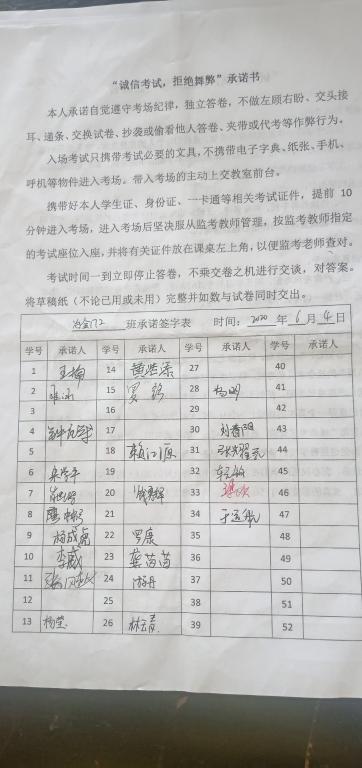 “诚信考试，拒绝舞弊”承诺书
本人承诺自觉遵守考场纪律，独立答卷，不做左顾右盼、交头接
耳、递条、交换试卷、抄袭或偷看他人答卷、夹带或代考等作弊行为。
入场考试只携带考试必要的文具，不携带电子字典、纸张、手机、
呼机等物件进入考场。带入考场的主动上交教室前台。
携带好本人学生证、身份证、一卡通等相关考试证件，提前 10
分钟进入考场，进入考场后坚决服从监考教师管理，按监考教师指定
的考试座位入座，并将有关证件放在课桌左上角，以便监考老师查对。
考试时间一到立即停止答卷，不乘交卷之机进行交谈，对答案。
将草稿纸（不论已用或未用）完整并如数与试卷同时交出。
冶金172 班承诺签字表 时间：2020 年 6 月 4 日
学号 承诺人 学号 承诺人 学号 承诺人 学号 承诺人
1 14 黄浩添 27 40
2 15 罗 28 杨明 41
3 16 29 42
4 17 30 刘香阳 43
5 18 赖江源 31 张耀元 44
6 19 32 45
7 20 33 46
8 21 34 47
9 杨成鑫 22 罗康 35 48
10 李威 23 龚茵茵 36 49
11 24 游丹 37 50
12 25 38 51
13 杨莹 26 林云青 39 52